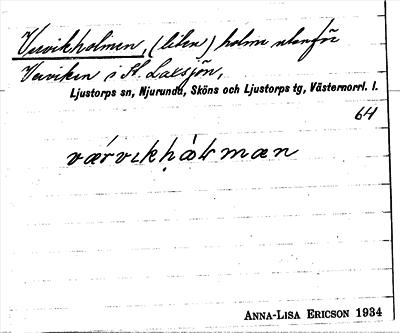 Vervikholmen, (liten) holme utanför
Verviken i St. Laxsjön,
Ljustorps sn, Njurunda, Sköns och Ljustorps tg, Västernorrl. l.
64
værvɩkhȧɫmæn
ANNA-LISA ERICSON 1934